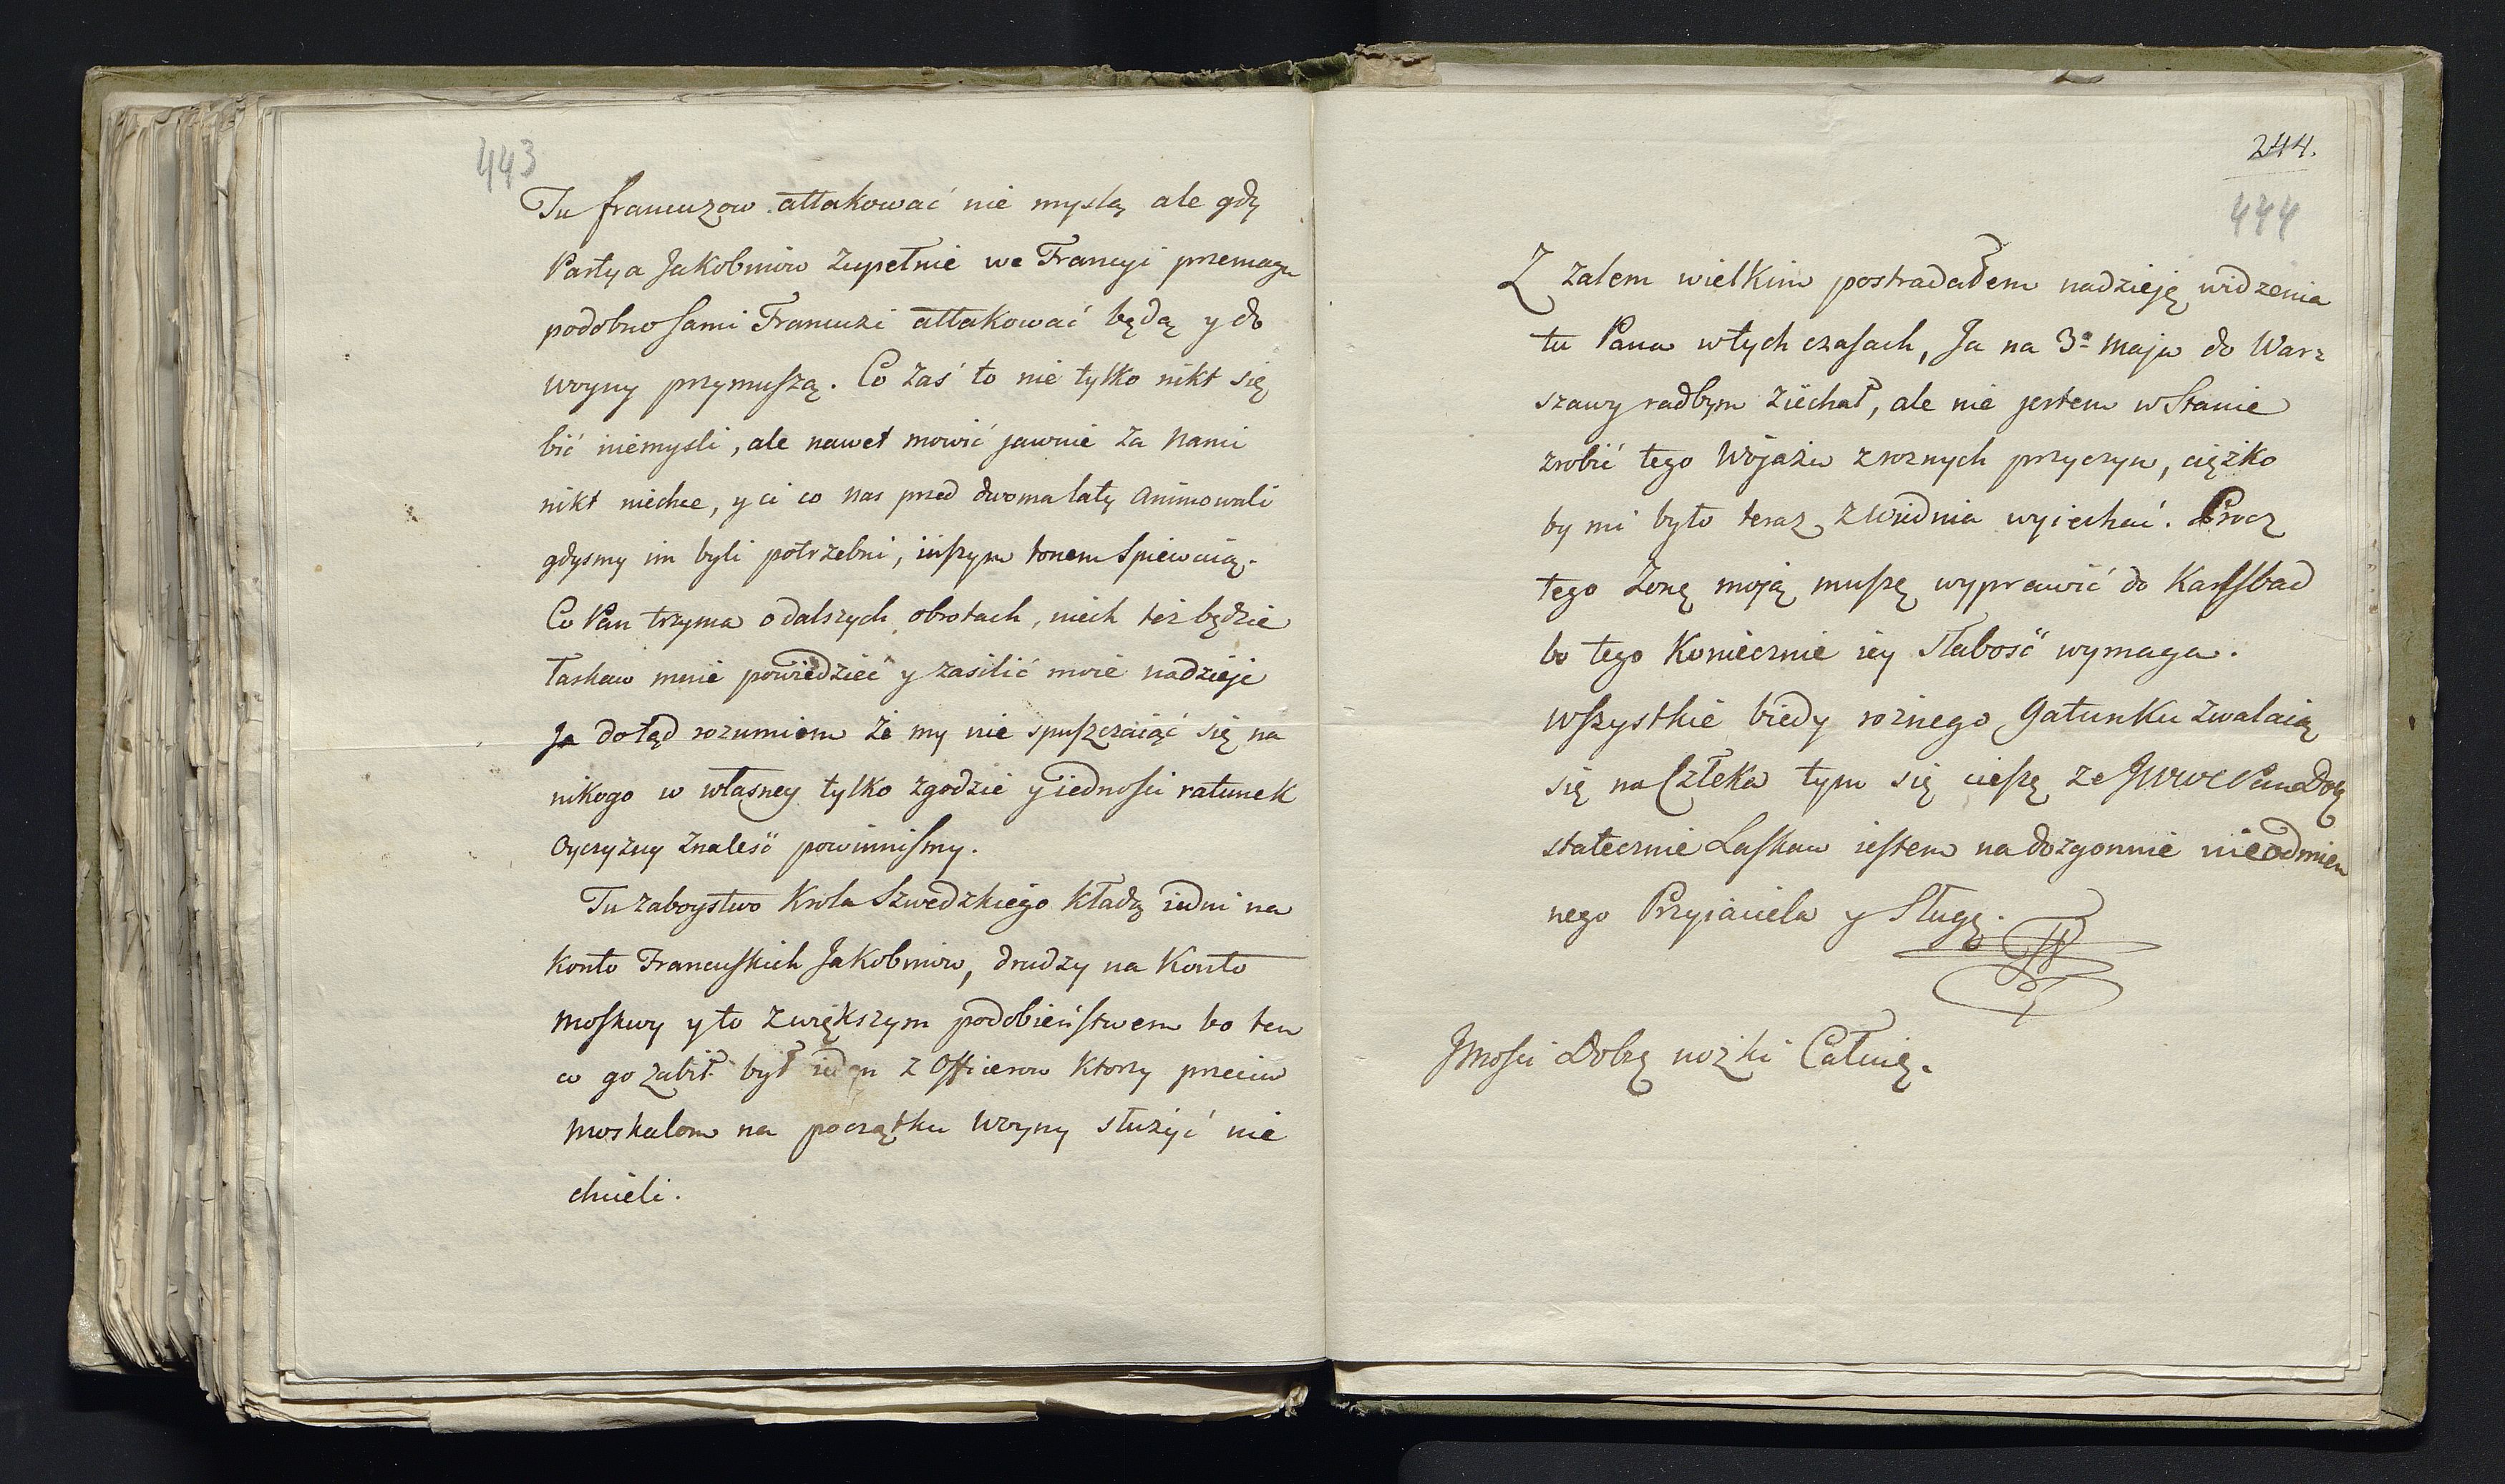 443
Tu francuzow attakować nie myslą ale gdy
Partya Jakobinow zupełnie we Francyi przemaga
podobno sami Francuzi attakować będą y do
woyny przymuszą. Co zaś to nie tylko nikt się
bić niemysli, ale nawet mowić jawnie za nami
nikt niechce, y ci co nas przed dwoma laty animowali
gdysmy im byli potrzebni, inszym tonem spiewaią.
Co Pan trzyma o dalszych obrotach, niech też będzie
łaskaw mnie powiedzieć y zasilić moie nadzieje
Ja dotąd rozumiem że my nie spuszczaiąc się na
nikogo w własney tylko zgodzie y iedności ratunek
Oyczyzny znaleść powinnismy.
Tu zaboystwo Krola Szwedzkiego kładą iedni na
konto Francuskich Jakobinow, drudzy na Konto
Moskwy y to z większym podobieństwem bo ten
co go zabił był ieden z Officerow ktorzy przeciw
Moskalom na początku woyny służyć nie
chcieli.
244.
444
Z żalem wielkim postradałem nadzieję widzenia
tu Pana w tych czasach, Ja na 3º Maja do War=
szawy radbym ziechał, ale nie jestem w Stanie
zrobić tego Wojażu z roznych przyczyn, ciężko
by mi było teraz z Wiednia wyiechać. Procz
tego Zonę moją muszę wyprawić do Karlsbad
bo tego Koniecznie iey Słabość wymaga.
Wszystkie biedy roznego Gatunku zwalaią
się na Człeka tym się cieszę że JWWC Pan Dobę
statecznie Laskaw iestem na dozgonnie nieodmien
nego Przyiaciela y Sługę.
Jmości Dobrę nożki Całuię.